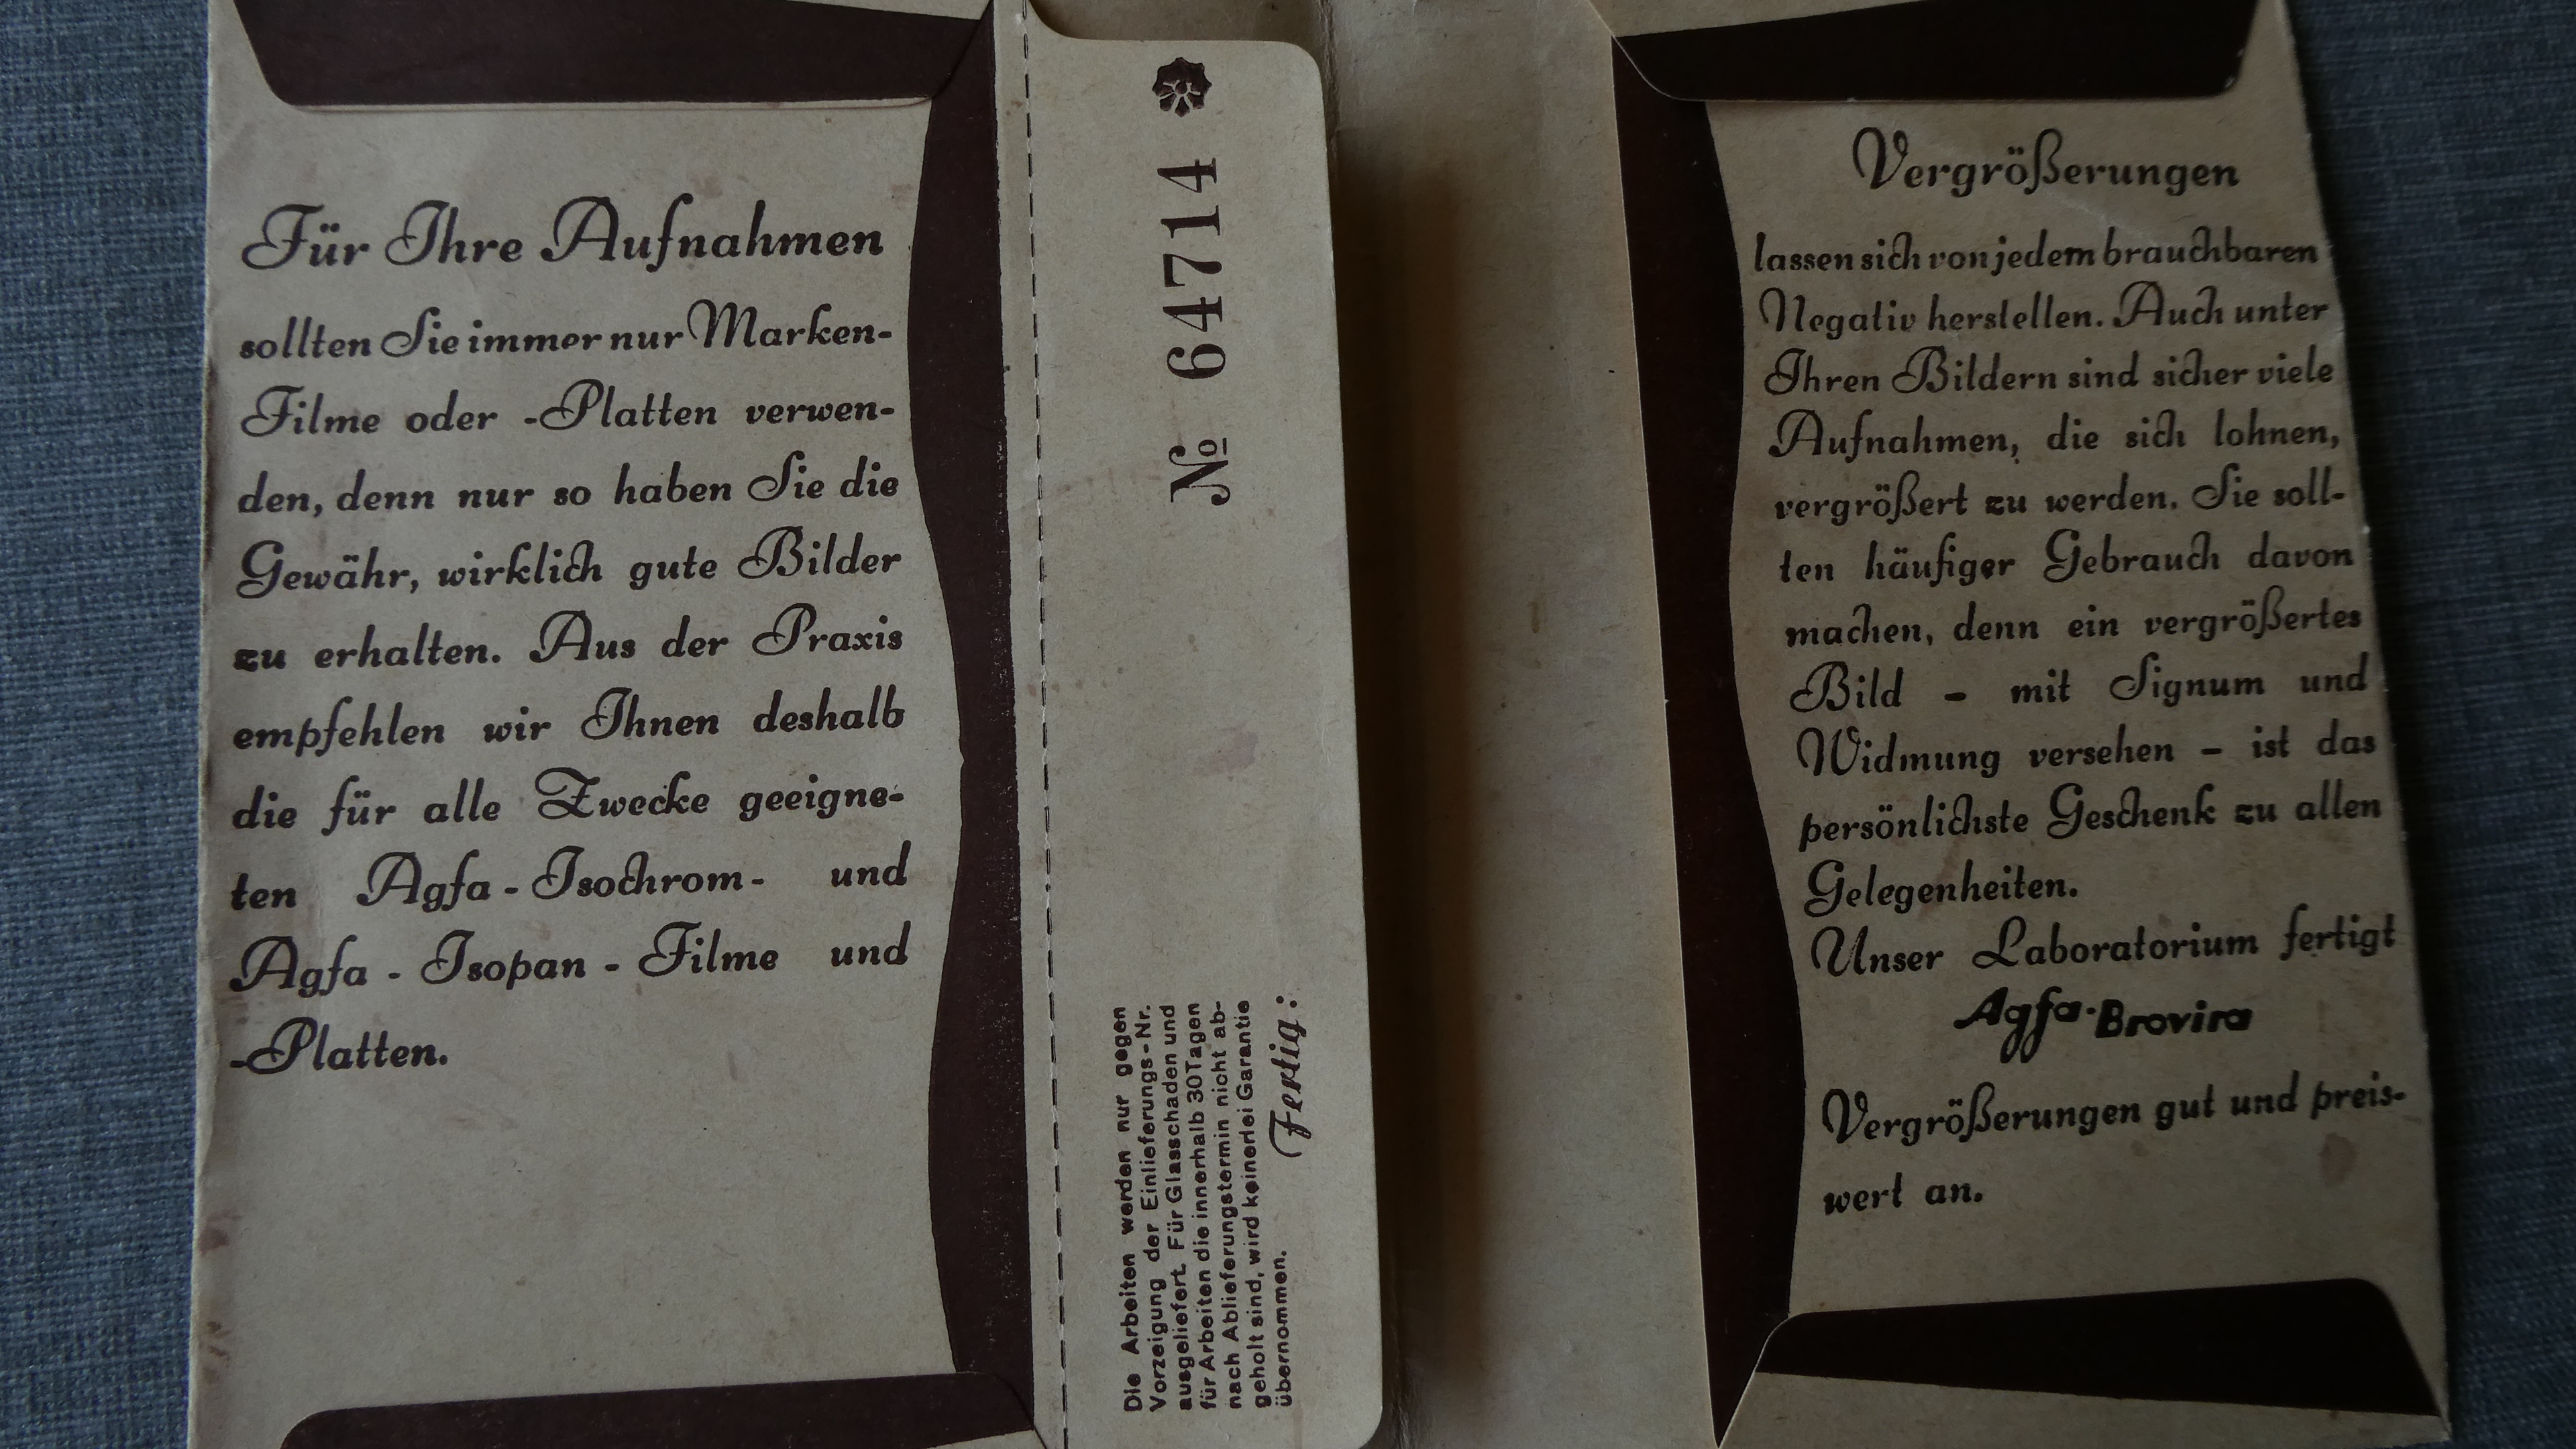 Für Ihre Aufnahmen
sollten Sie immer nur Marken-
Filme oder -Platten verwen-
den, denn nur so haben Sie die
Gewähr, wirklich gute Bilder
zu erhalten. Aus der Praxis
empfehlen wir Ihnen deshalb
die für alle Zwecke geeigne-
ten Agfa-Isochrom- und
Agfa-Isopan-Filme und
-Platten.
№ 64714
Die Arbeiten werden nur gegen
Vorzeigung der Einlieferungs-Nr.
ausgeliefert. Für Glasschaden und
für Arbeiten die innerhalb 30 Tagen
nach Ablieferungstermin nicht ab-
geholt sind, wird keinerlei Garantie
übernommen.
Fertig:
Vergrößerungen
lassen sich von jedem brauchbaren
Negativ herstellen. Auch unter
Ihren Bildern sind sicher viele
Aufnahmen, die sich lohnen,
vergrößert zu werden. Sie soll-
ten häufiger Gebrauch davon
machen, denn ein vergrößertes
Bild - mit Signum und
Widmung versehen - ist das
persönlichste Geschenk zu allen
Gelegenheiten.
Unser Laboratorium fertigt
Agfa-Brovira
Vergrößerungen gut und preis-
wert an.